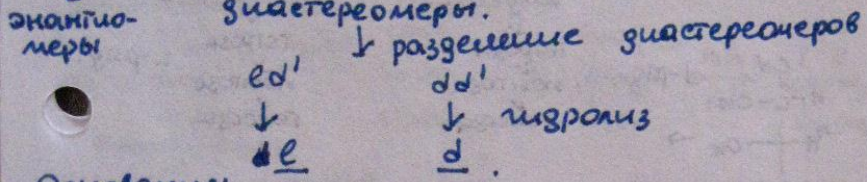 энантио- диастереомеры.
меры ↓ разделение диастереомеров
ld' dd'
↓ ↓ гидролиз
l d .